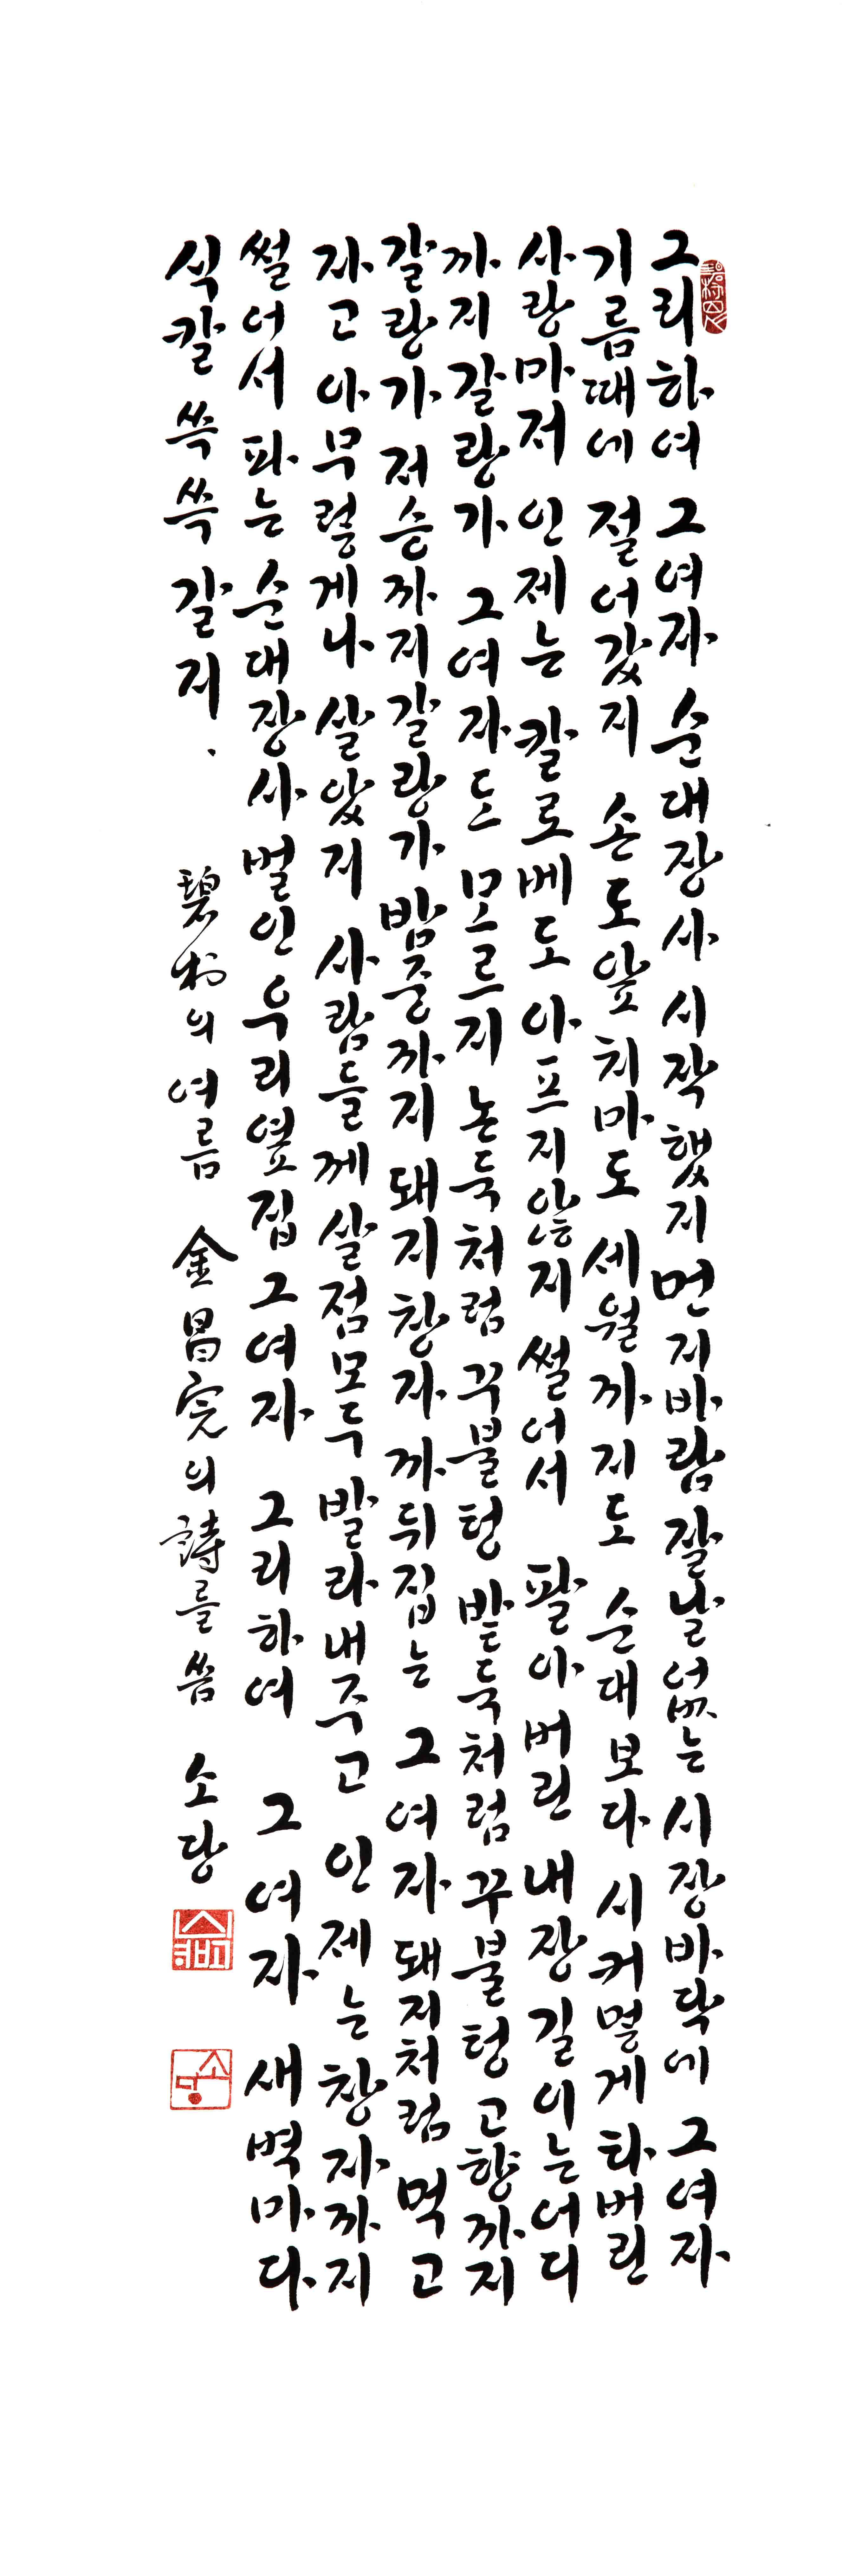 그리하여 그여자 순대장사 시작했지 먼지바람 잘날없는 시장바닥에 그여자
기름때에 절어갔지 손도앞치마도 세월까지도 순대보다 시커멓게 타버린
사랑마저 인제는 칼로베도 아프지않지 썰어서 팔아버린 내장길이는어디
까지갈랑가 그여자도 모르지 논둑처럼 꾸불텅 밭둑처럼 꾸불텅 고향까지
갈랑가 저승까지갈랑가 밤중까지 돼지창자까뒤집는 그여자 돼지처럼 먹고
자고 아무렇게나 살았지 사람들께 살점모두 발라내주고 인제는 창자까지
썰어서 파는 순대장사 벌인 우리옆집 그여자 그리하여 그여자 새벽마다
식칼 쓱쓱 갈지.
碧村의 여름 金昌完의 詩를 씀 소당
소당